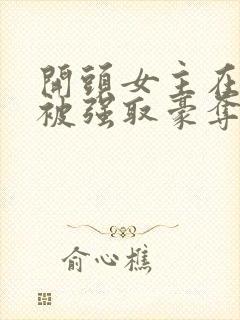 開頭女主在
被强取豪奪
俞心樵